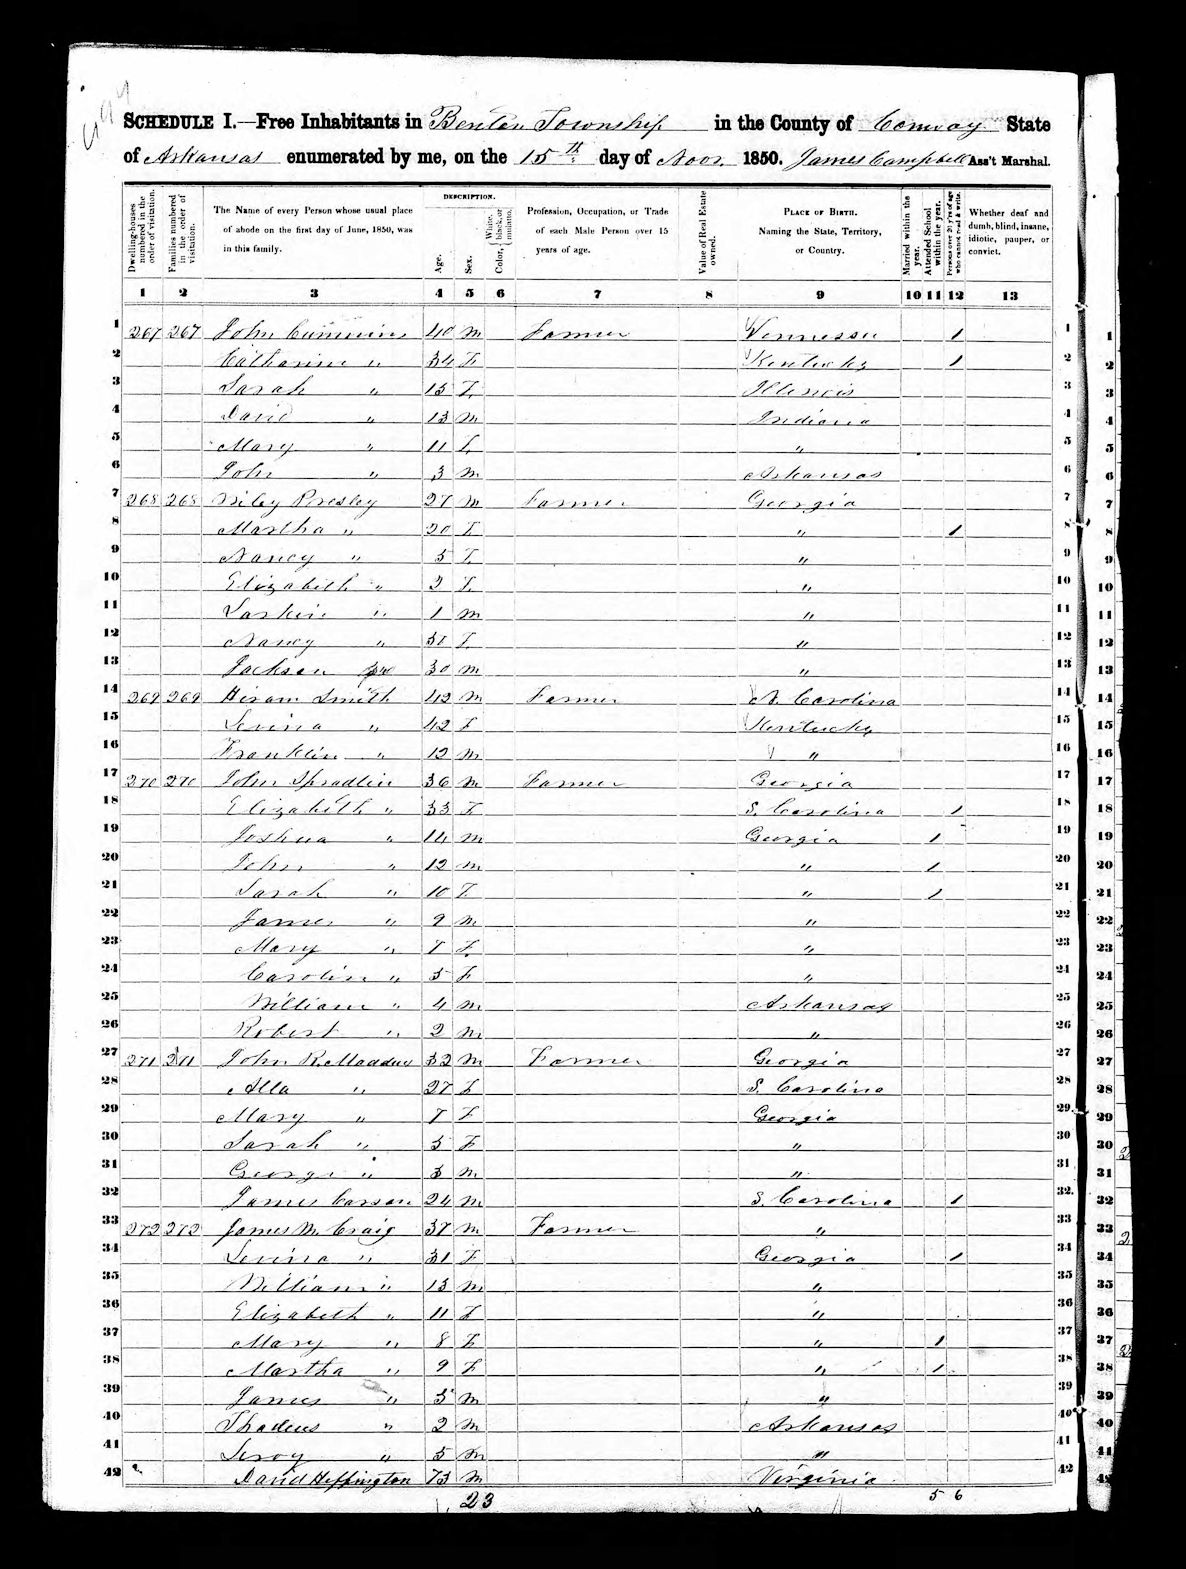 SCHEDULE I.—Free Inhabitants in Benton Township in the County of Conway State
of Arkansas enumerated by me, on the 15th day of Novr. 1850. James Campbell Ass't Marshal.
Dwelling-houses numbered in the order of visitation.
Families numbered in the order of visitation.
The Name of every Person whose usual place of abode on the first day of June, 1850, was in this family.
DESCRIPTION.
Age.
Sex.
Color, White, black, or mulatto.
Profession, Occupation, or Trade of each Male Person over 15 years of age.
Value of Real Estate owned.
PLACE OF BIRTH. Naming the State, Territory, or Country.
Married within the year.
Attended School within the year.
Persons over 20 y'rs of age who cannot read & write.
Whether deaf and dumb, blind, insane, idiotic, pauper, or convict.
1 2 3 4 5 6 7 8 9 10 11 12 13
1 267 267 John Cummins 40 M Farmer Tennessee 1 1
2 Catharine " 34 F Kentucky 1 2
3 Sarah " 15 F Illinois 3
4 David " 13 M Indiana 4
5 Mary " 11 F " 5
6 John " 3 M Arkansas 6
7 268 268 Wiley Presley 27 M Farmer Georgia 7
8 Martha " 20 F " 1 8
9 Nancy " 5 F " 9
10 Elizabeth " 2 F " 10
11 Larkin " 1 M " 11
12 Nancy " 51 F " 12
13 Jackson 30 M " 13
14 269 269 Hiram Smith 42 M Farmer N. Carolina 14
15 Levina " 42 F Kentucky 15
16 Franklin " 12 M " 16
17 270 270 John Spradlin 36 M Farmer Georgia 17
18 Elizabeth " 33 F S. Carolina 1 18
19 Joshua " 14 M Georgia 1 19
20 John " 12 M " 1 20
21 Sarah " 10 F " 1 21
22 James " 9 M " 22
23 Mary " 7 F " 23
24 Carolin " 5 F " 24
25 William " 4 M Arkansas 25
26 Robert " 2 M " 26
27 271 271 John R. Maddux 32 M Farmer Georgia 27
28 Alla " 27 F S. Carolina 28
29 Mary " 7 F Georgia 29
30 Sarah " 5 F " 30
31 George " 3 M " 31
32 James Carson 24 M S. Carolina 1 32
33 272 272 James M. Craig 37 M Farmer " 33
34 Levina " 31 F Georgia 1 34
35 William " 13 M " 35
36 Elizabeth " 11 F " 36
37 Mary " 8 F " 1 37
38 Martha " 9 F " 1 38
39 James " 5 M " 39
40 Thadeus " 2 M Arkansas 40
41 Leroy " 5 M " 41
42 David Heffington 73 M Virginia 42
23 5 6